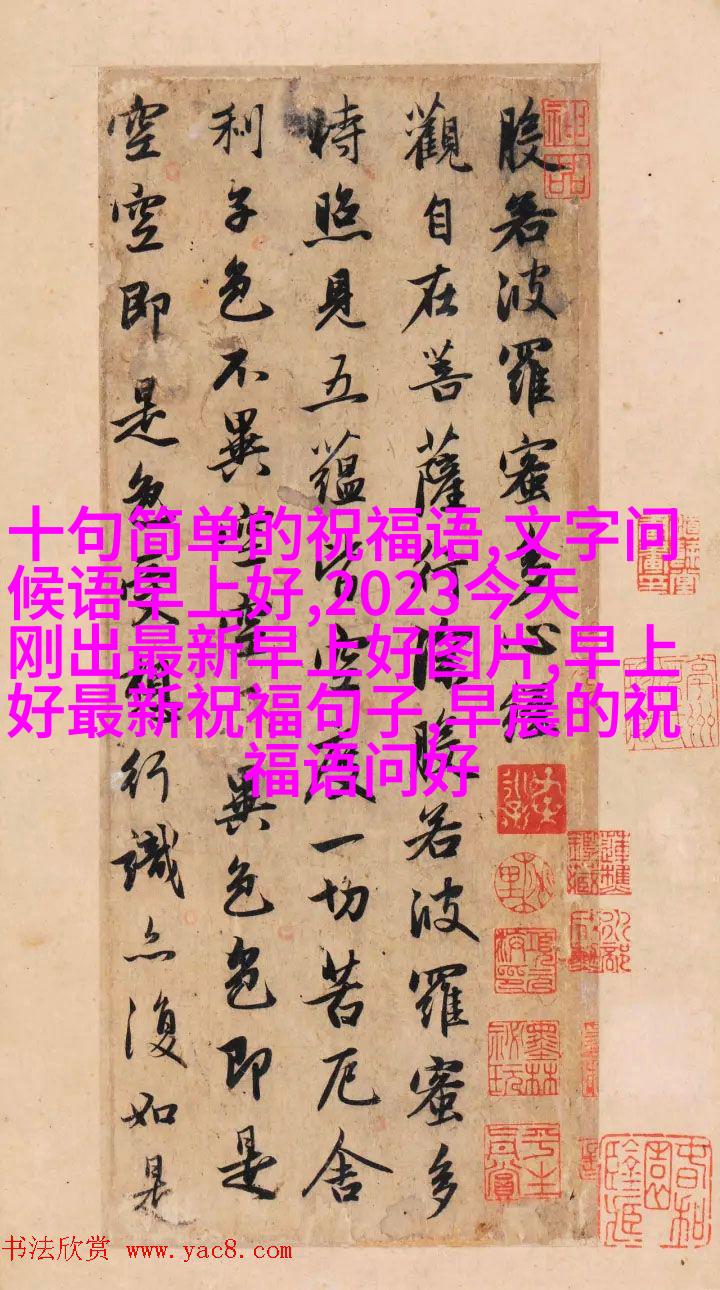 般若波羅蜜多心經
觀自在菩薩行深般若波羅蜜多
時照見五蘊皆空度一切苦厄舍
利子色不異空空不異色色即是
空空即是色受想行識亦復如是
神品
墨林祕玩
十句简单的祝福语,文字问
候语早上好,2023今天
刚出最新早上好图片,早上
好最新祝福句子,早晨的祝
福语问好
书法欣赏 www.yac8.com